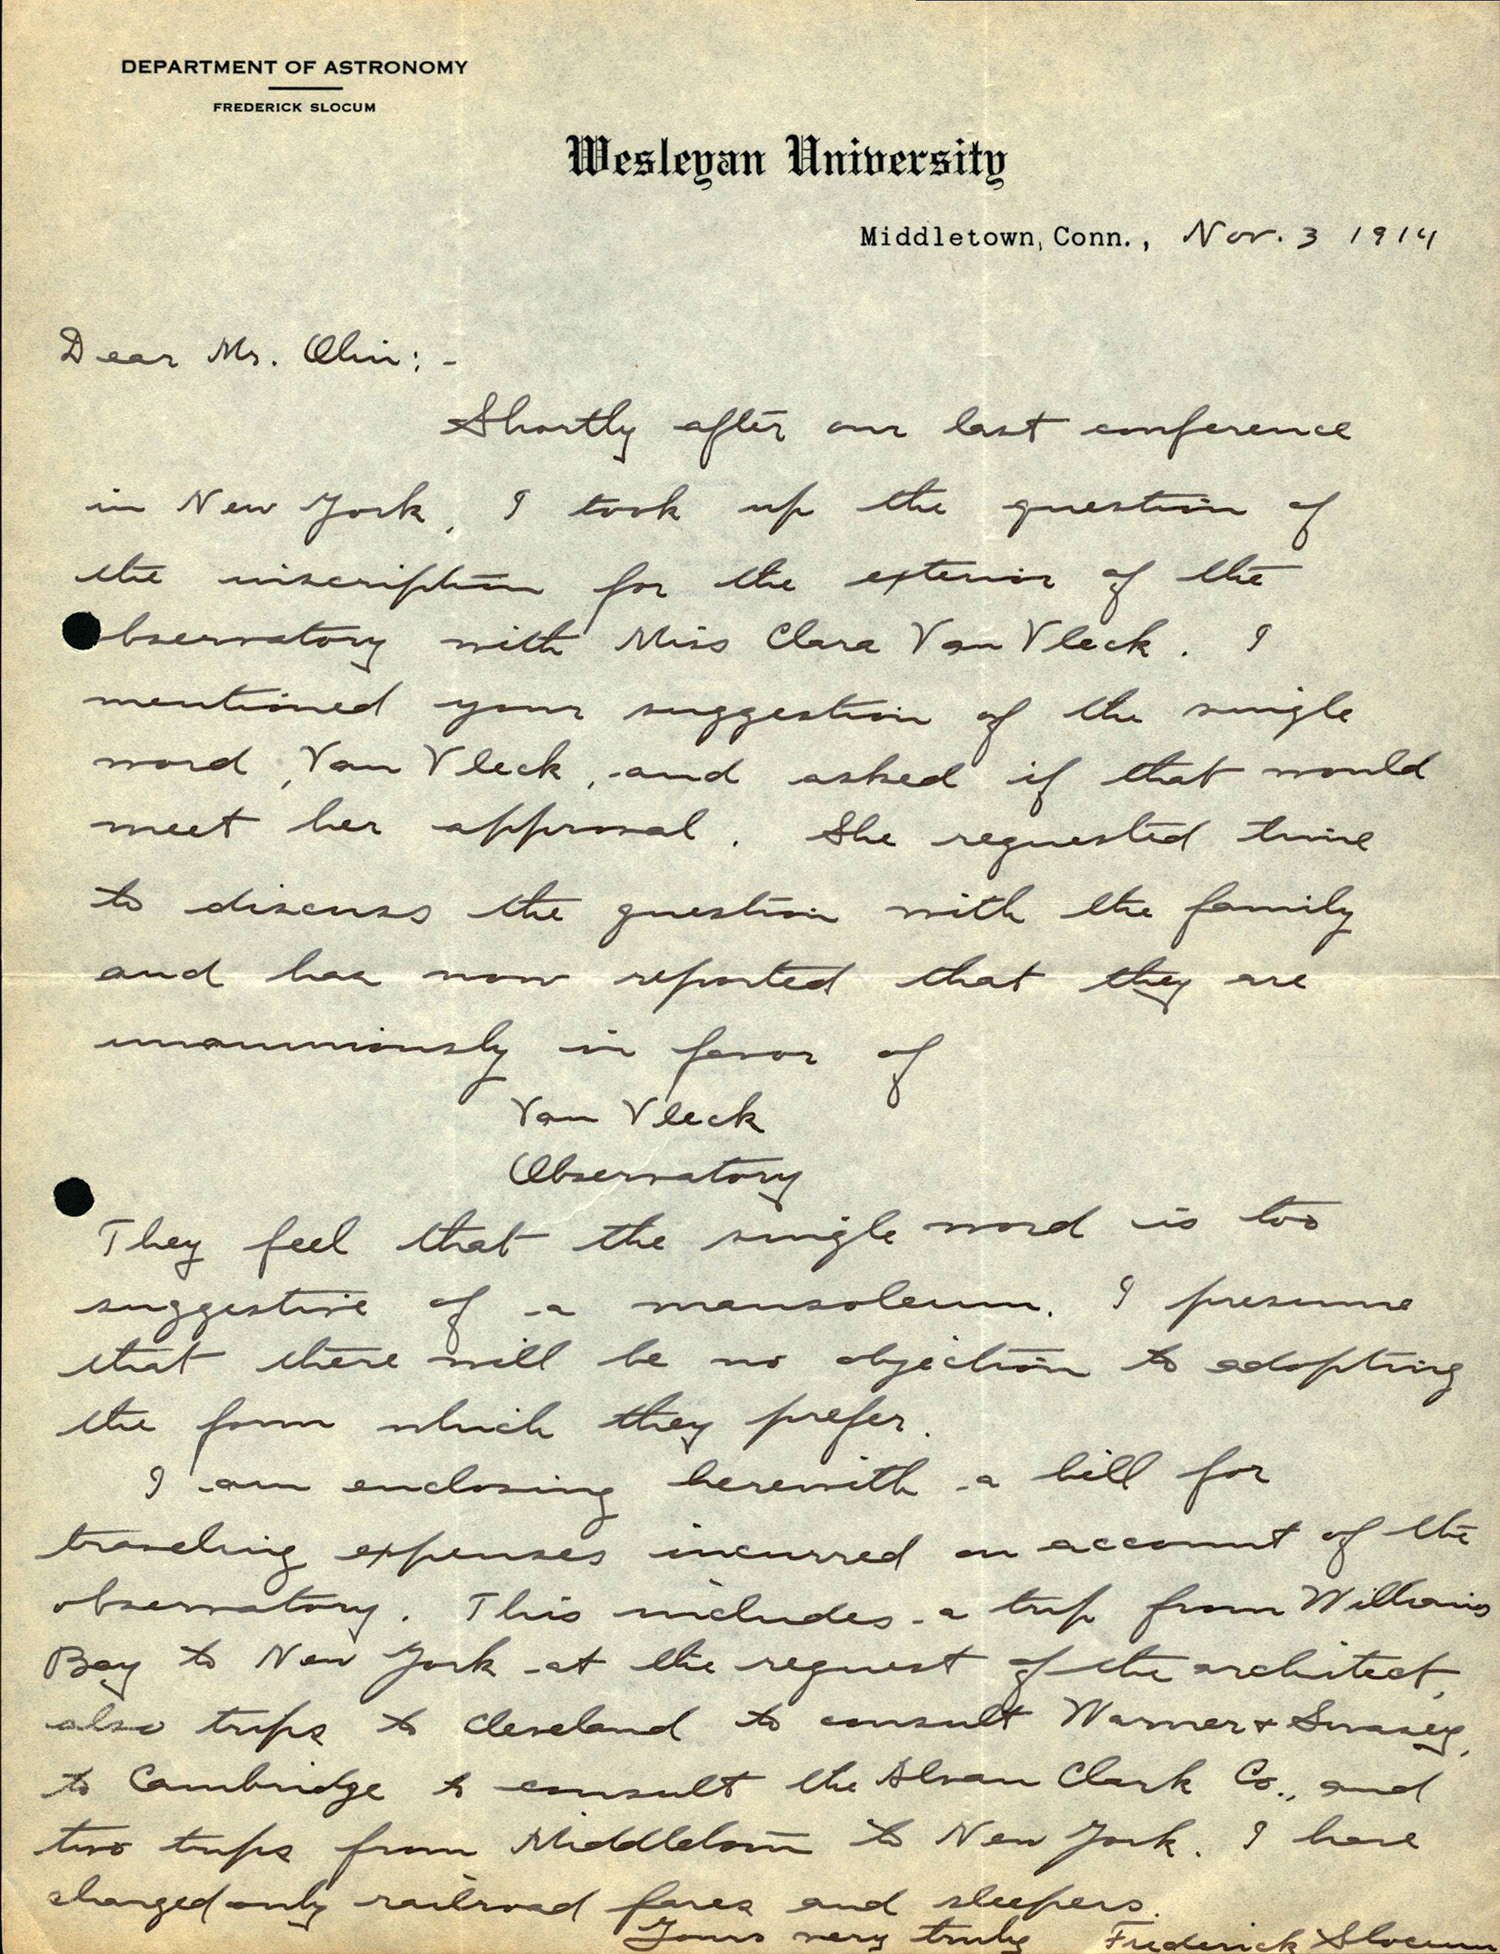 DEPARTMENT OF ASTRONOMY
FREDERICK SLOCUM
Wesleyan University
Middletown, Conn., Nov. 3 1914
Dear Mr. Olin: -
Shortly after our last conference
in New York, I took up the question of
the inscription for the exterior of the
observatory with Miss Clara Van Vleck. I
mentioned your suggestion of the single
word, Van Vleck, and asked if that would
meet her approval. She requested time
to discuss the question with the family
and has now reported that they are
unanimously in favor of
Van Vleck
Observatory
They feel that the single word is too
suggestive of a mausoleum. I presume
that there will be no objection to adopting
the form which they prefer.
I am enclosing herewith a bill for
traveling expenses incurred on account of the
observatory. This includes a trip from Williams
Bay to New York at the request of the architect,
also trips to Cleveland to consult Warner & Swasey,
to Cambridge to consult the Alvan Clark Co., and
two trips from Middletown to New York. I have
charged only railroad fares and sleepers.
Yours very truly Frederick Slocum